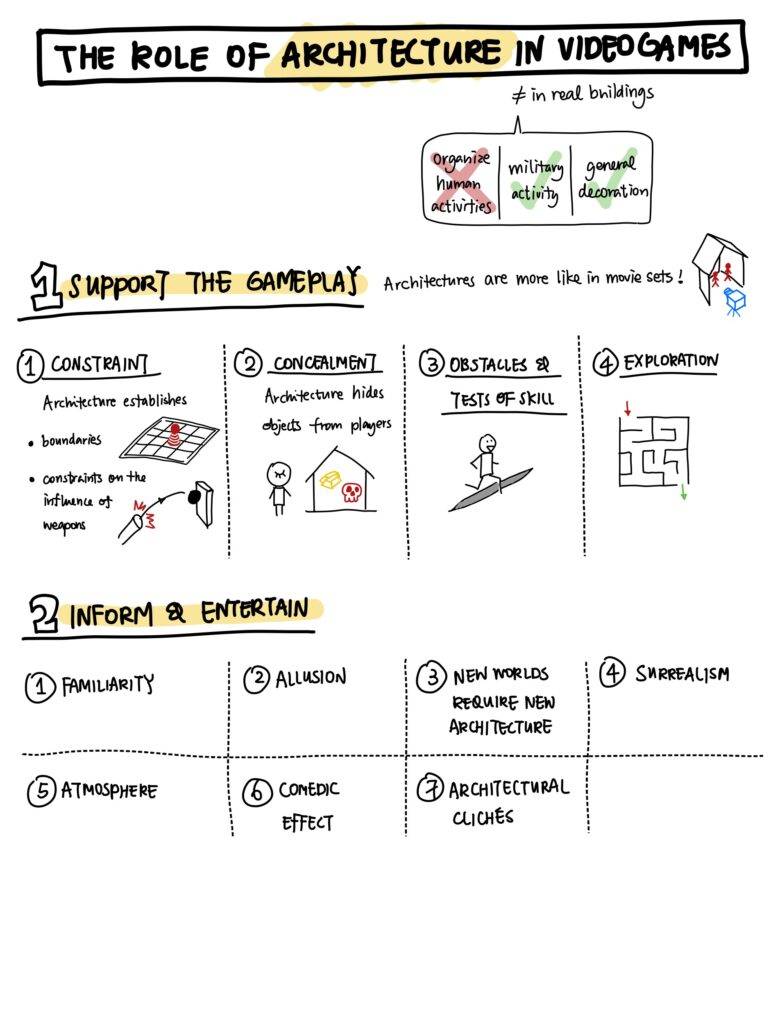 THE ROLE OF ARCHITECTURE IN VIDEOGAMES
≠ in real buildings
organize
human
activities
military
activity
general
decoration
1 SUPPORT THE GAMEPLAY
Architectures are more like in movie sets!
1 CONSTRAINT
Architecture establishes
• boundaries
• constraints on the
influence of
weapons
2 CONCEALMENT
Architecture hides
objects from players
3 OBSTACLES &
TESTS OF SKILL
4 EXPLORATION
2 INFORM & ENTERTAIN
1 FAMILIARITY
2 ALLUSION
3 NEW WORLDS
REQUIRE NEW
ARCHITECTURE
4 SURREALISM
5 ATMOSPHERE
6 COMEDIC
EFFECT
7 ARCHITECTURAL
CLICHÉS